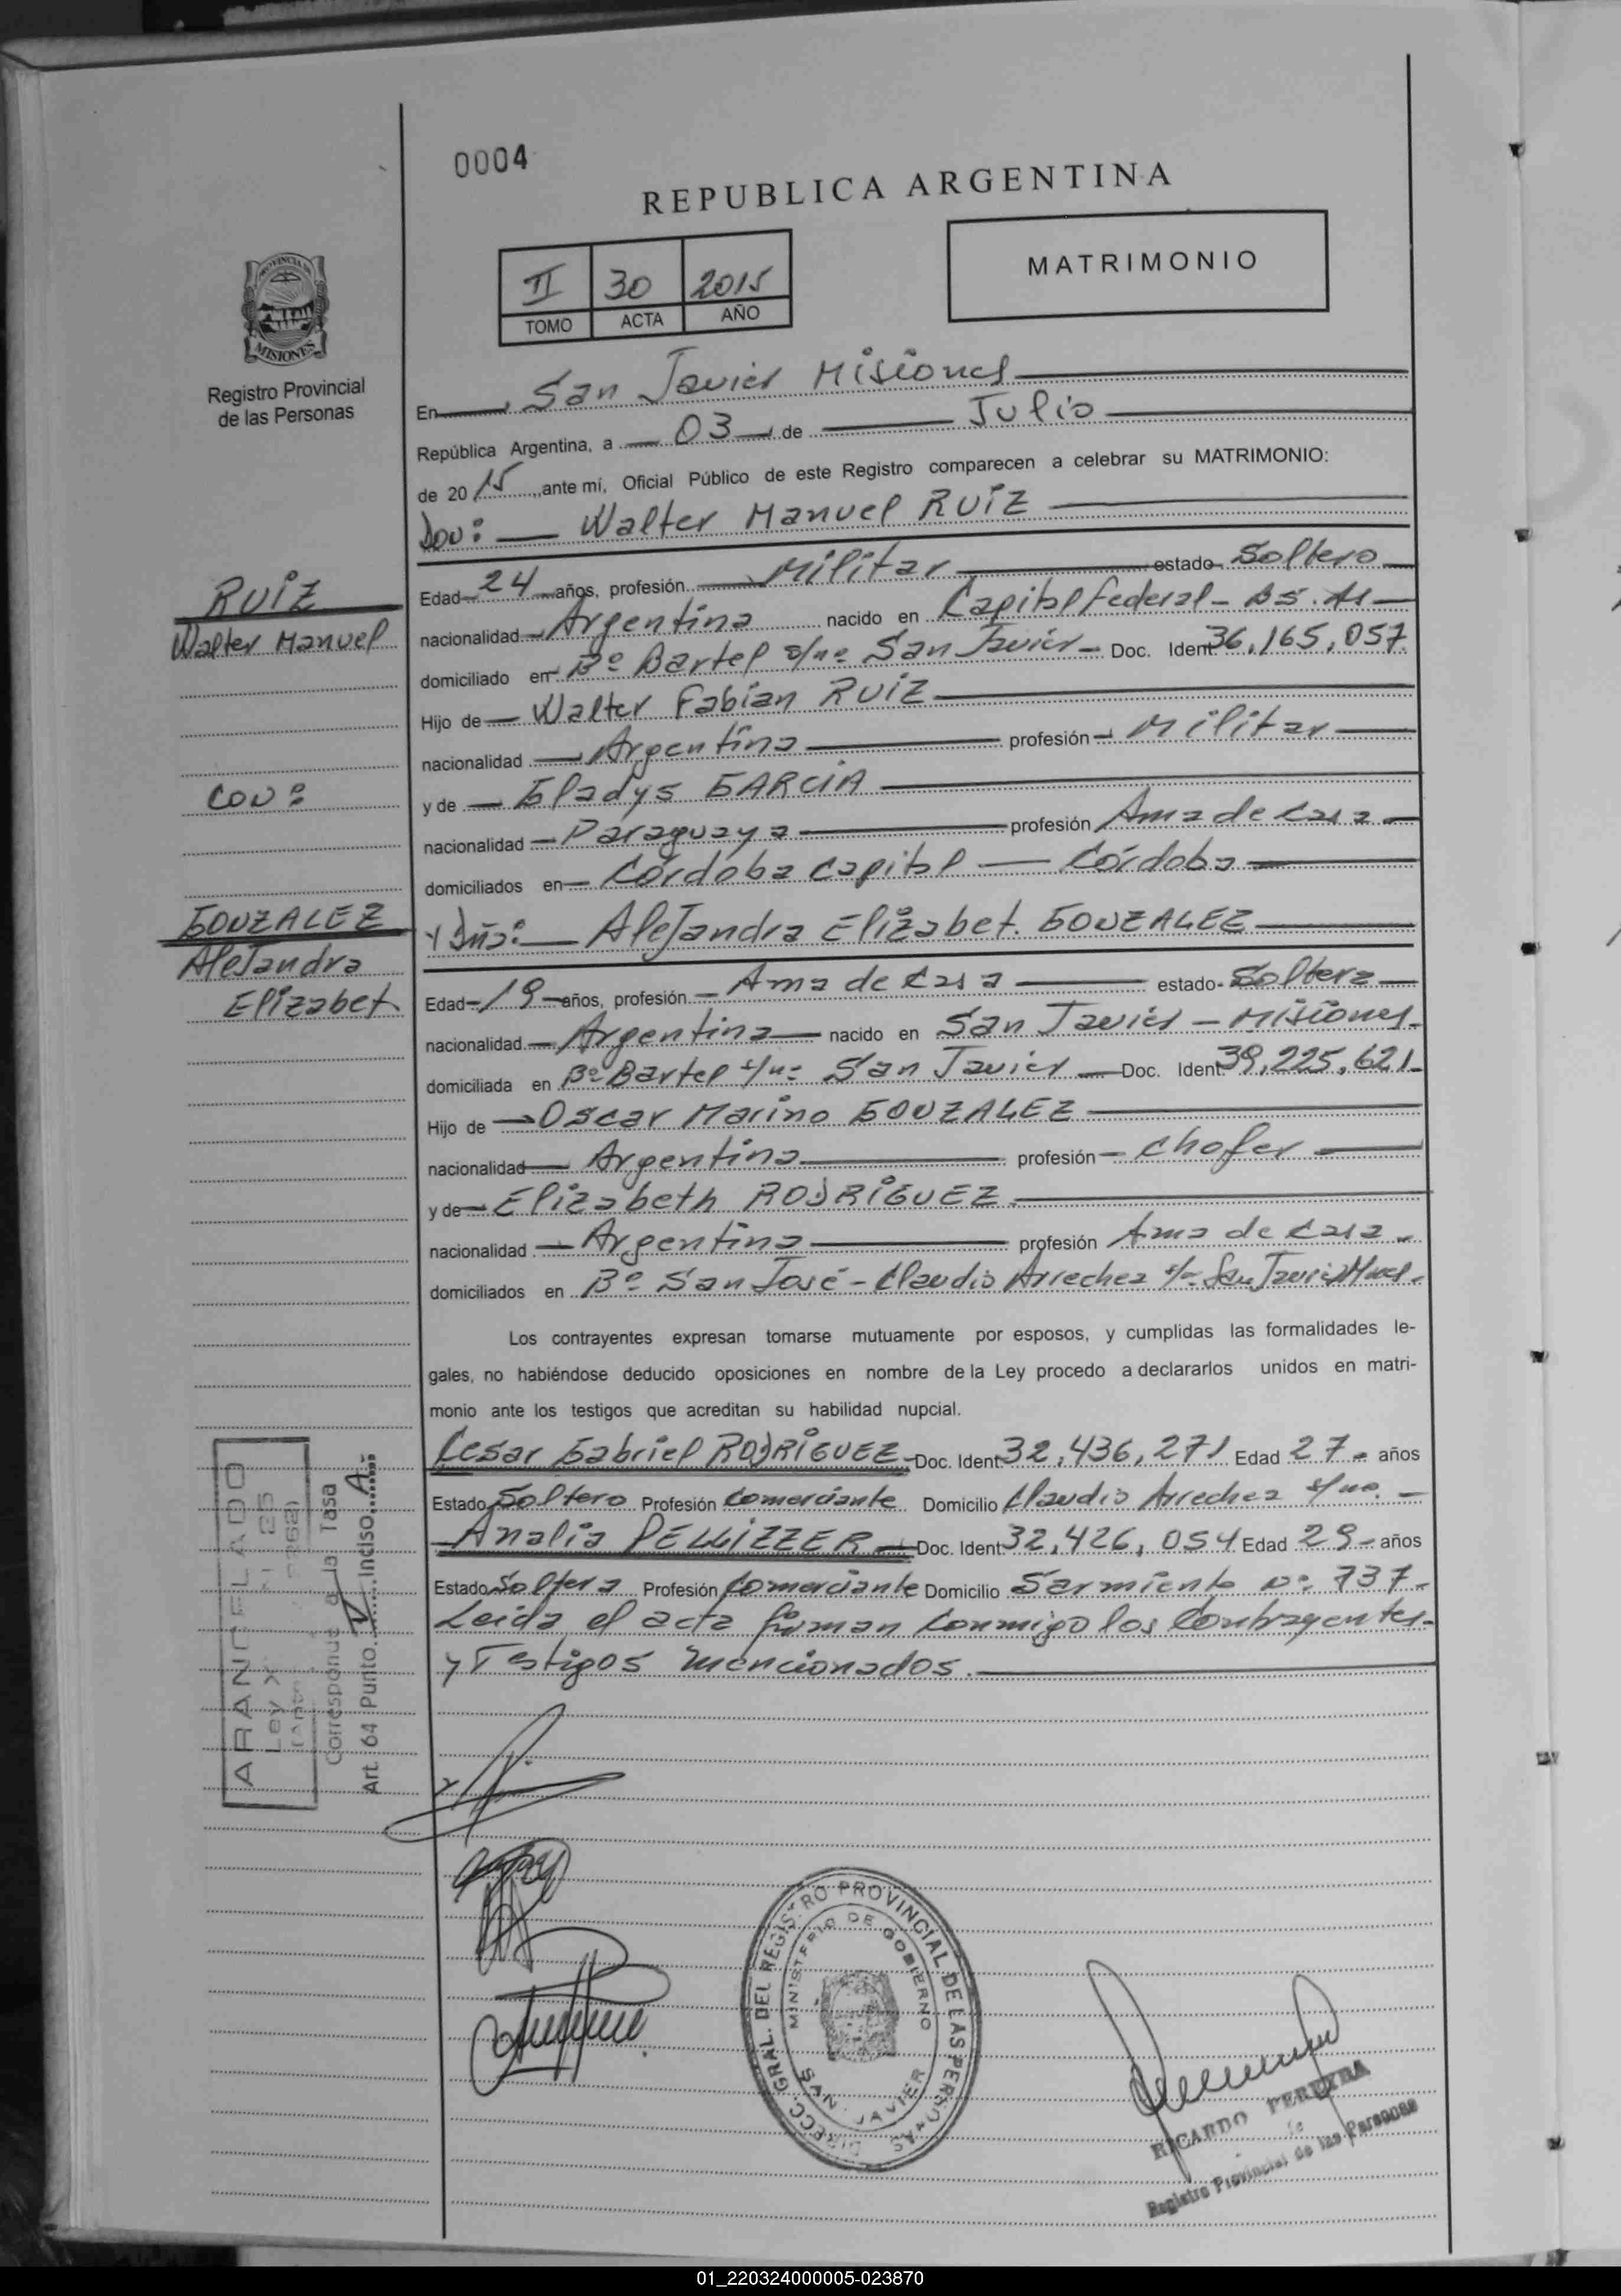 0004
REPUBLICA ARGENTINA
PROVINCIA DE
MISIONES
Registro Provincial
de las Personas
II 30 2015
TOMO ACTA AÑO
MATRIMONIO
En San Javier Misiones
República Argentina, a 03 de Julio
de 2015, ante mí, Oficial Público de este Registro comparecen a celebrar su MATRIMONIO:
Don: Walter Manuel RUIZ
RUIZ
Walter Manuel
Edad 24 años, profesión Militar estado Soltero
nacionalidad Argentina nacido en Capital Federal - Bs. As
domiciliado en Bº Bartel s/nº San Javier - Doc. Ident 36,165,057
Hijo de Walter Fabian RUIZ
nacionalidad Argentina profesión Militar
con:
y de Gladys GARCIA
nacionalidad Paraguaya profesión Ama de casa
domiciliados en Córdoba Capital - Córdoba
GONZALEZ
Alejandra
Elizabet
Y Dña: Alejandra Elizabet GONZALEZ
Edad 19 años, profesión Ama de casa estado Soltera
nacionalidad Argentina nacido en San Javier - Misiones
domiciliada en Bº Bartel s/nº San Javier Doc. Ident 39,225,621
Hijo de Oscar Marino GONZALEZ
nacionalidad Argentina profesión Chofer
y de Elizabeth RODRIGUEZ
nacionalidad Argentina profesión Ama de casa
domiciliados en Bº San José - Claudio Arrechea s/nº San Javier Mnes.
Los contrayentes expresan tomarse mutuamente por esposos, y cumplidas las formalidades le-
gales, no habiéndose deducido oposiciones en nombre de la Ley procedo a declararlos unidos en matri-
monio ante los testigos que acreditan su habilidad nupcial.
Cesar Gabriel RODRIGUEZ Doc. Ident 32,436,271 Edad 27 años
Estado Soltero Profesión Comerciante Domicilio Claudio Arrechea s/nº
Analia PELLIZZER Doc. Ident 32,426,054 Edad 29 años
Estado Soltera Profesión Comerciante Domicilio Sarmiento Nº 737
Leida el acta firman conmigo los Contrayentes
y Testigos mencionados.
ARANCELADO
Ley X
Corresponde a la Tasa
Art. 64 Punto V Inciso A
DIRECC. GRAL. DEL REGISTRO PROVINCIAL DE LAS PERSONAS
MINISTERIO DE GOBIERNO
SAN JAVIER
RICARDO PEREYRA
Registro Provincial de las Personas
01_220324000005-023870